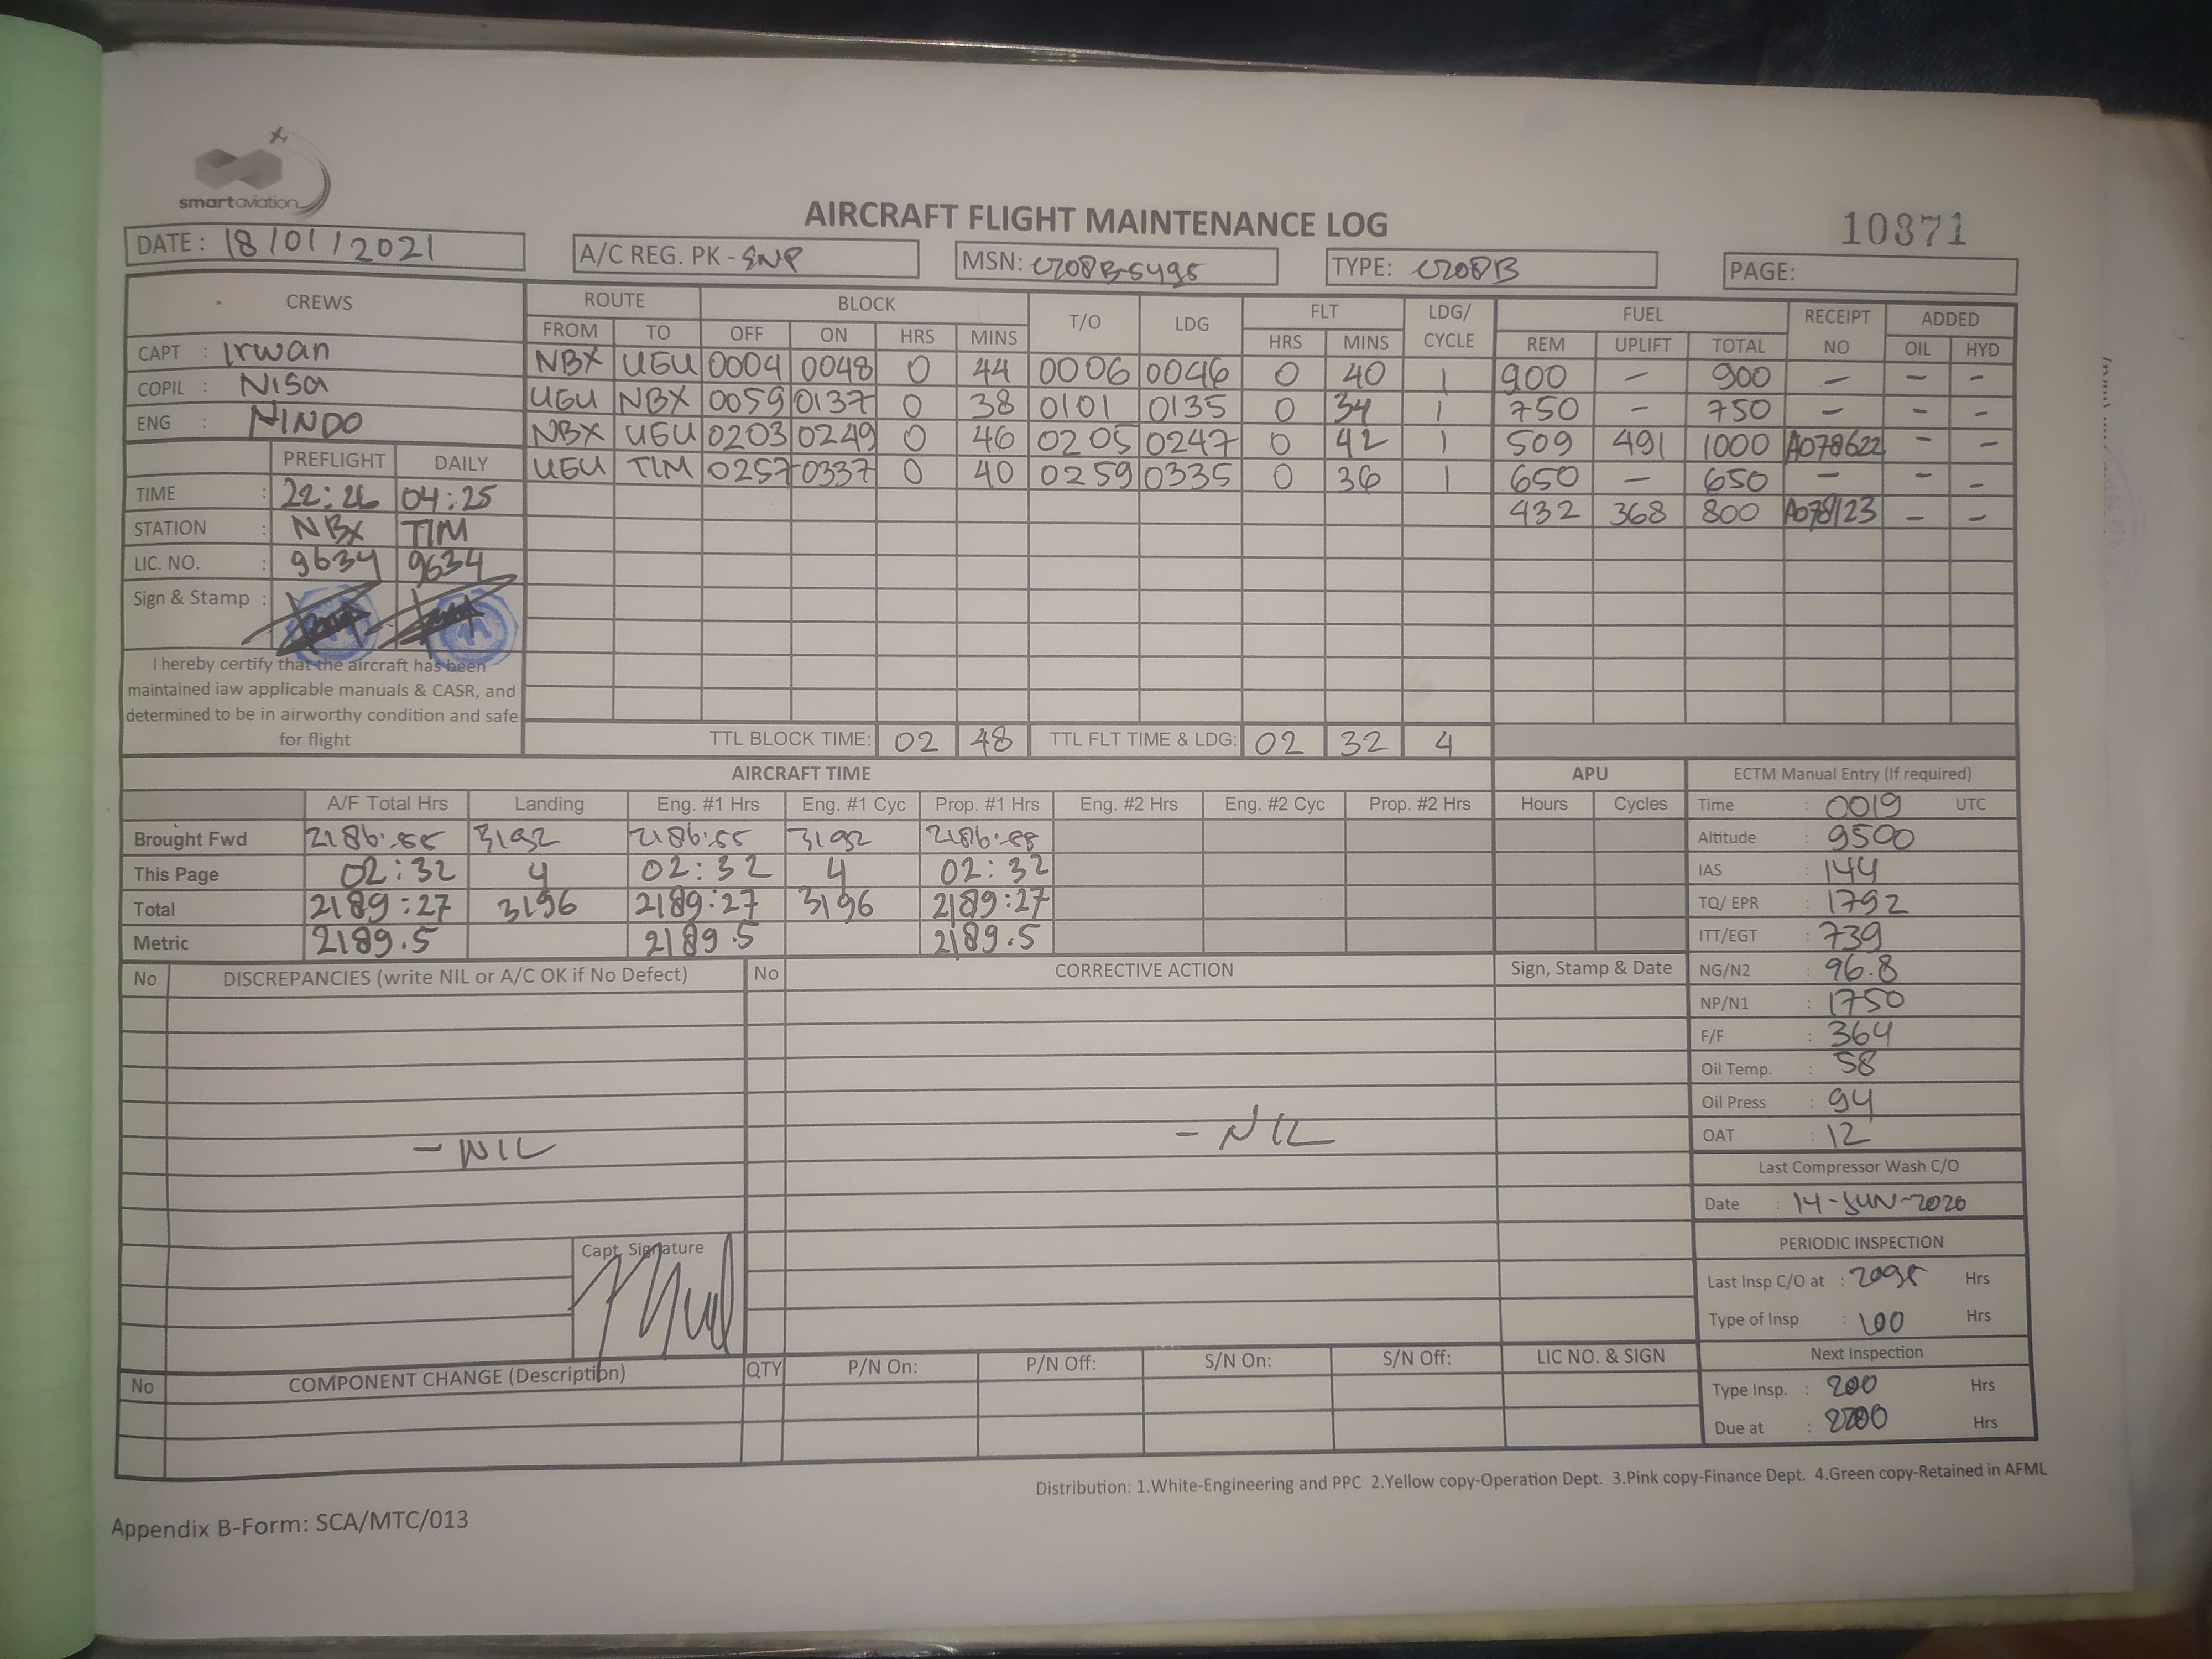 smartaviation
AIRCRAFT FLIGHT MAINTENANCE LOG
10871
DATE : 18/01/2021
A/C REG. PK - SNP
MSN: C208B5495
TYPE: C208B
PAGE:
CREWS ROUTE BLOCK T/O LDG FLT LDG/ CYCLE FUEL RECEIPT NO ADDED
FROM TO OFF ON HRS MINS HRS MINS REM UPLIFT TOTAL OIL HYD
CAPT : Irwan
COPIL : Nisa
ENG : NINDO
NBX UGU 0004 0048 0 44 0006 0046 0 40 1 900 - 900 - - -
UGU NBX 0059 0137 0 38 0101 0135 0 34 1 750 - 750 - - -
NBX UGU 0203 0249 0 46 0205 0247 0 42 1 509 491 1000 A078622 - -
UGU TIM 0257 0337 0 40 0259 0335 0 36 1 650 - 650 - - -
432 368 800 A078123 - -
PREFLIGHT DAILY
TIME : 22:26 04:25
STATION : NBX TIM
LIC. NO. : 9634 9634
Sign & Stamp :
I hereby certify that the aircraft has been
maintained iaw applicable manuals & CASR, and
determined to be in airworthy condition and safe
for flight
TTL BLOCK TIME: 02 48 TTL FLT TIME & LDG: 02 32 4
AIRCRAFT TIME APU ECTM Manual Entry (If required)
A/F Total Hrs Landing Eng. #1 Hrs Eng. #1 Cyc Prop. #1 Hrs Eng. #2 Hrs Eng. #2 Cyc Prop. #2 Hrs Hours Cycles
Brought Fwd 2186:55 3192 2186:55 3192 2186:55
This Page 02:32 4 02:32 4 02:32
Total 2189:27 3196 2189:27 3196 2189:27
Metric 2189.5 2189.5 2189.5
Time : 0019 UTC
Altitude : 9500
IAS : 144
TQ/ EPR : 1792
ITT/EGT : 739
NG/N2 : 96.8
NP/N1 : 1750
F/F : 364
Oil Temp. : 58
Oil Press : 94
OAT : 12
Last Compressor Wash C/O
Date : 14-JUN-2020
PERIODIC INSPECTION
Last Insp C/O at : 2095 Hrs
Type of Insp : 100 Hrs
Next Inspection
Type Insp. : 200 Hrs
Due at : 2200 Hrs
No DISCREPANCIES (write NIL or A/C OK if No Defect) No CORRECTIVE ACTION Sign, Stamp & Date
- NIL - NIL
Capt. Signature
No COMPONENT CHANGE (Description) QTY P/N On: P/N Off: S/N On: S/N Off: LIC NO. & SIGN
Distribution: 1.White-Engineering and PPC 2.Yellow copy-Operation Dept. 3.Pink copy-Finance Dept. 4.Green copy-Retained in AFML
Appendix B-Form: SCA/MTC/013